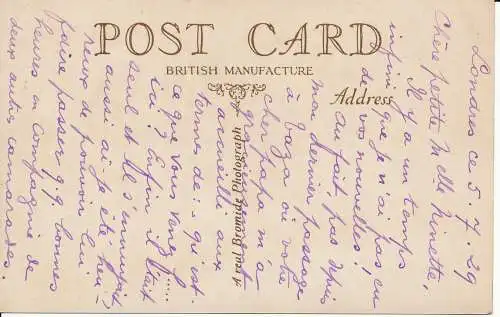 POST CARD
BRITISH MANUFACTURE
Address
A real Bromide Photograph
Londres ce 5.7.29
Chère petite Melle Ninette,
Il y a un temps
infini que je n'ai pas eu
de vos nouvelles!
Au fait, pas depuis
mon dernier passage
à où votre
cher papa m'a
accueilli aux
termes de: qu'est-
ce que vous venez f.....
ici? Enfin il était
seul et il s'ennuyait
aussi ai-je été heu-
reux de pouvoir lui
faire passer q.q. bonnes
heures en compagnie de
deux autres camarades.